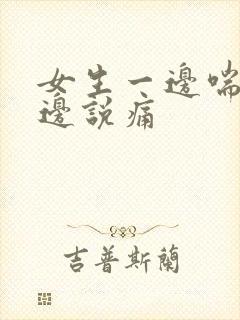 女生一邊喘
邊說痛
吉普斯蘭